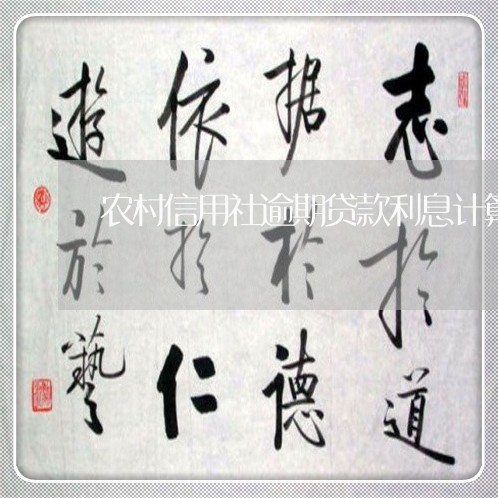 志於道
据於德
依於仁
遊於藝
农村信用社逾期贷款利息计算